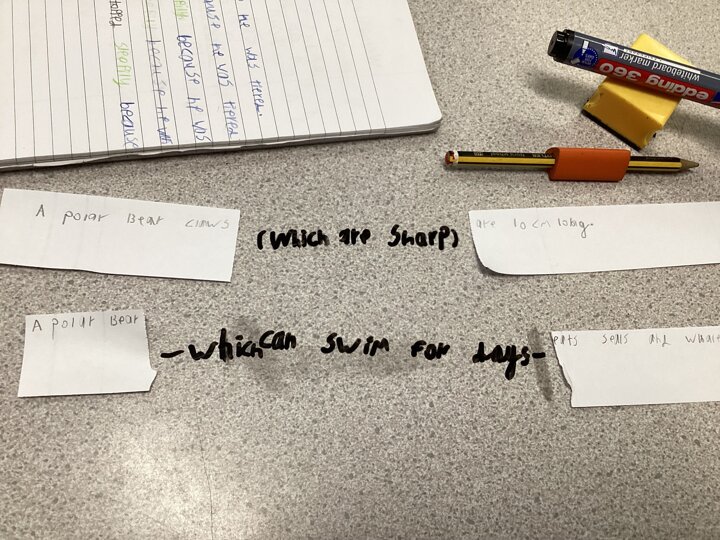 he was tiered.
because he was tiered
because he was
because he
stopped SPOtify because
edding 360
whiteboard marker
A polar Bear claws (Which are Sharp) are 10 cm long.
A polar Bear -which can swim For days- eats sells and whale